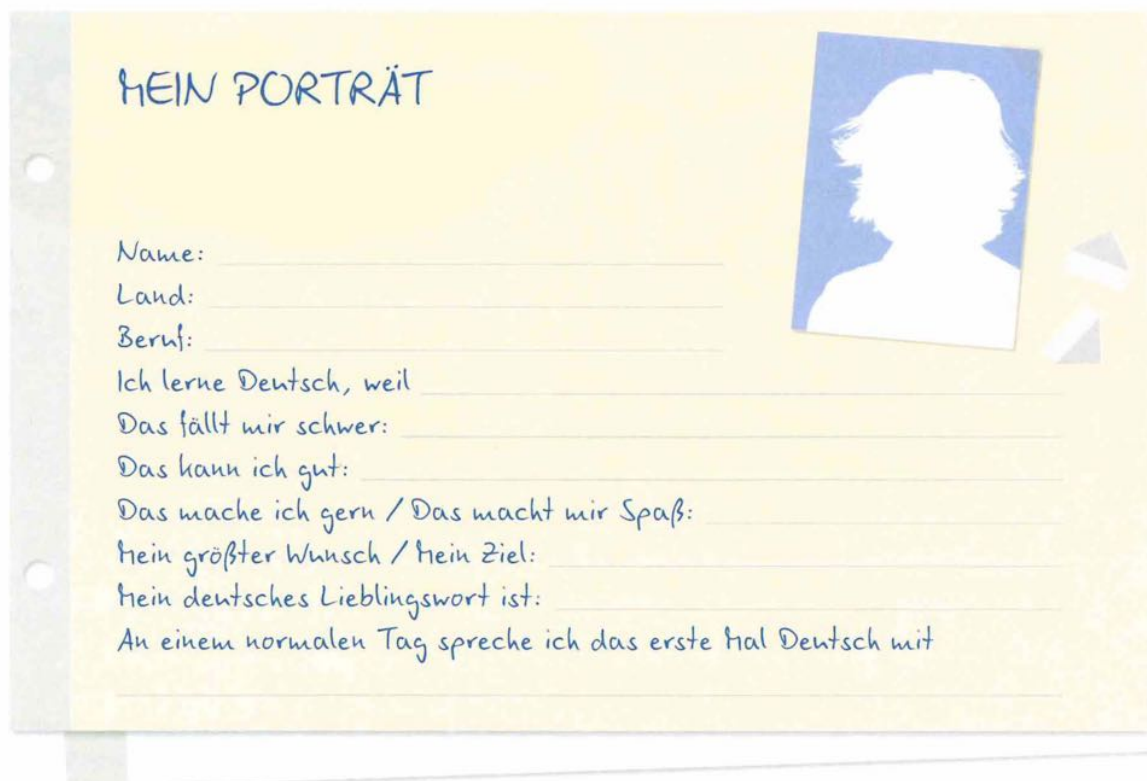 MEIN PORTRÄT
Name:
Land:
Beruf:
Ich lerne Deutsch, weil
Das fällt mir schwer:
Das kann ich gut:
Das mache ich gern / Das macht mir Spaß:
Mein größter Wunsch / Mein Ziel:
Mein deutsches Lieblingswort ist:
An einem normalen Tag spreche ich das erste Mal Deutsch mit